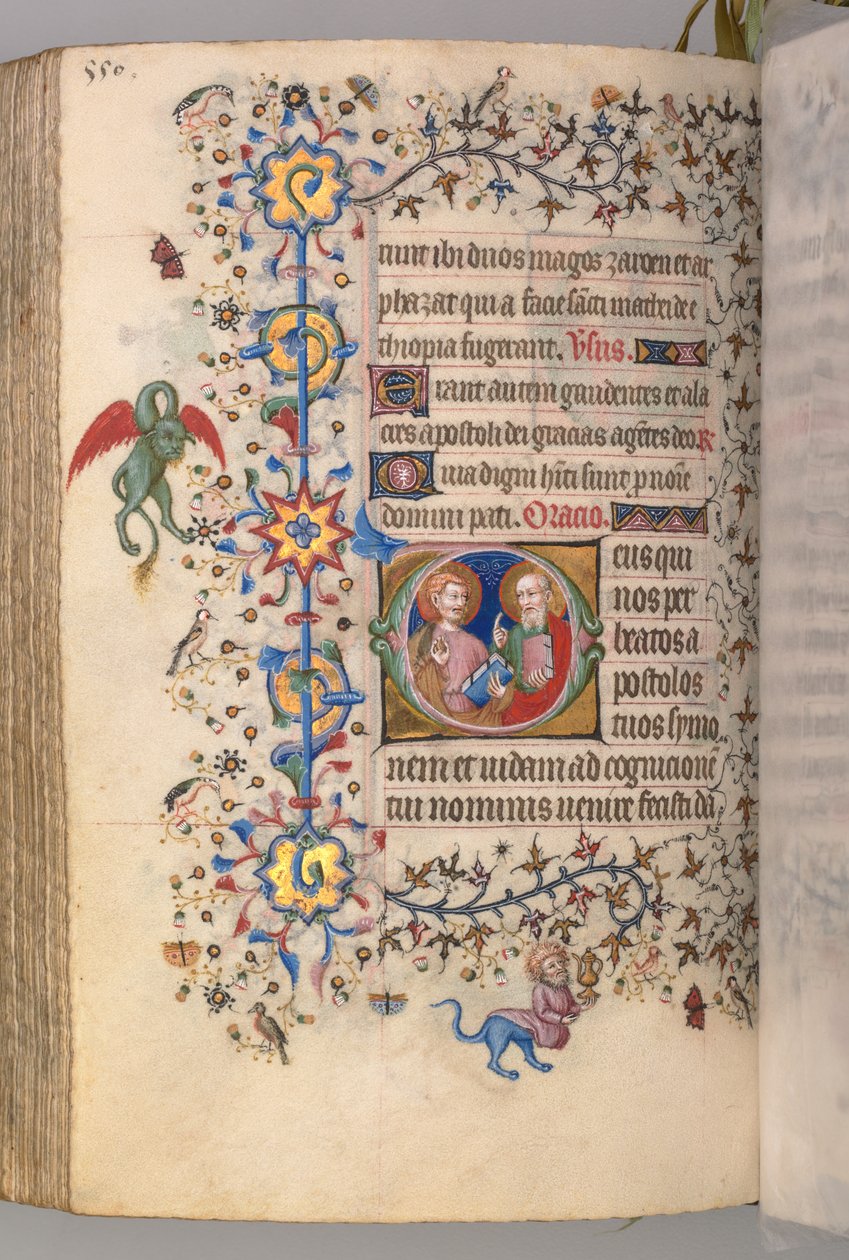 550.
runt ibi duos magos zaroen et ar
phazat qui a facie sācti mathei de
thiopia fugerant. V̄sus.
Erant autem gaudentes et ala
cres apostoli dei gracias agētes deo. R
Quia digni hīti sunt p̄ noīe
domini pati. Oracio.
Deus qui
nos per
beatos a
postolos
tuos symo
nem et iudam ad cognicionē
tui nominis uenire fecisti da